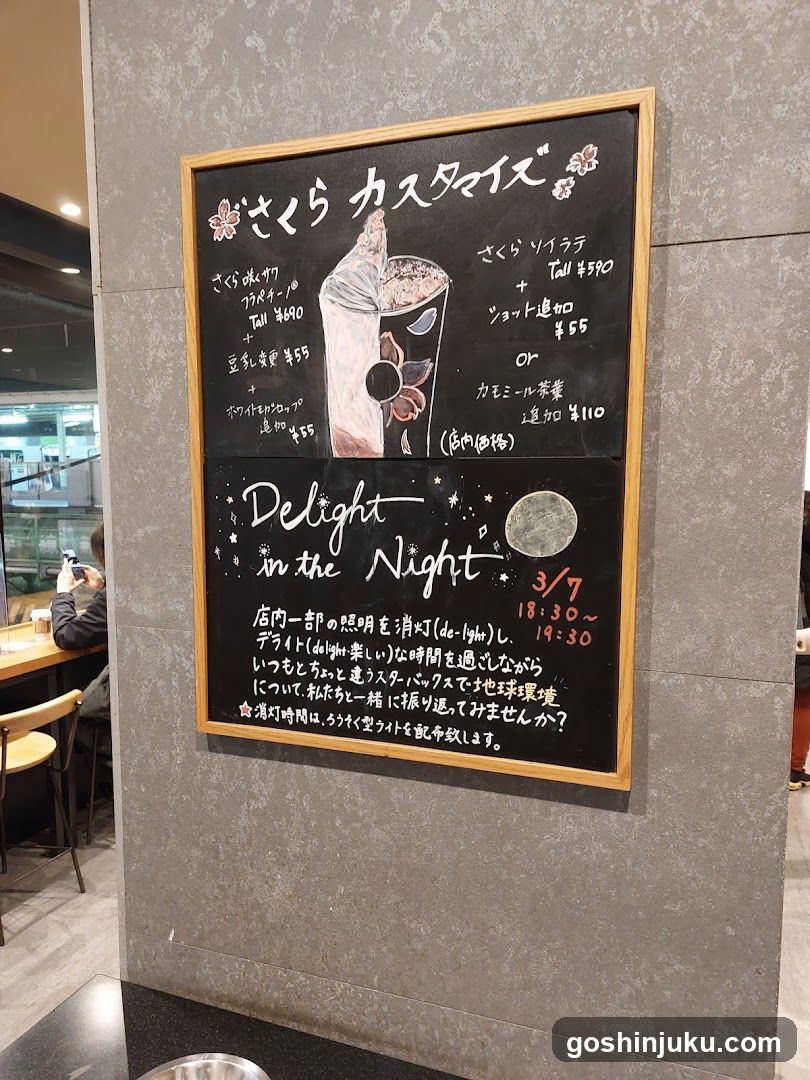 さくら カスタマイズ
さくら 咲くサク
フラペチーノ®
Tall ¥690
+
豆乳変更 ¥55
+
ホワイトモカシロップ
追加 ¥55
さくら ソイラテ
Tall ¥590
+
ショット追加
¥55
or
カモミール茶葉
追加 ¥110
(店内価格)
Delight
in the Night
3/7
18:30~
19:30
店内一部の照明を消灯(de-light)し、
デライト(delight・楽しい)な時間を過ごしながら
いつもとちょっと違うスターバックスで"地球環境"
について、私たちと一緒に振り返ってみませんか?
☆消灯時間は、ろうそく型ライトを配布致します。
goshinjuku.com